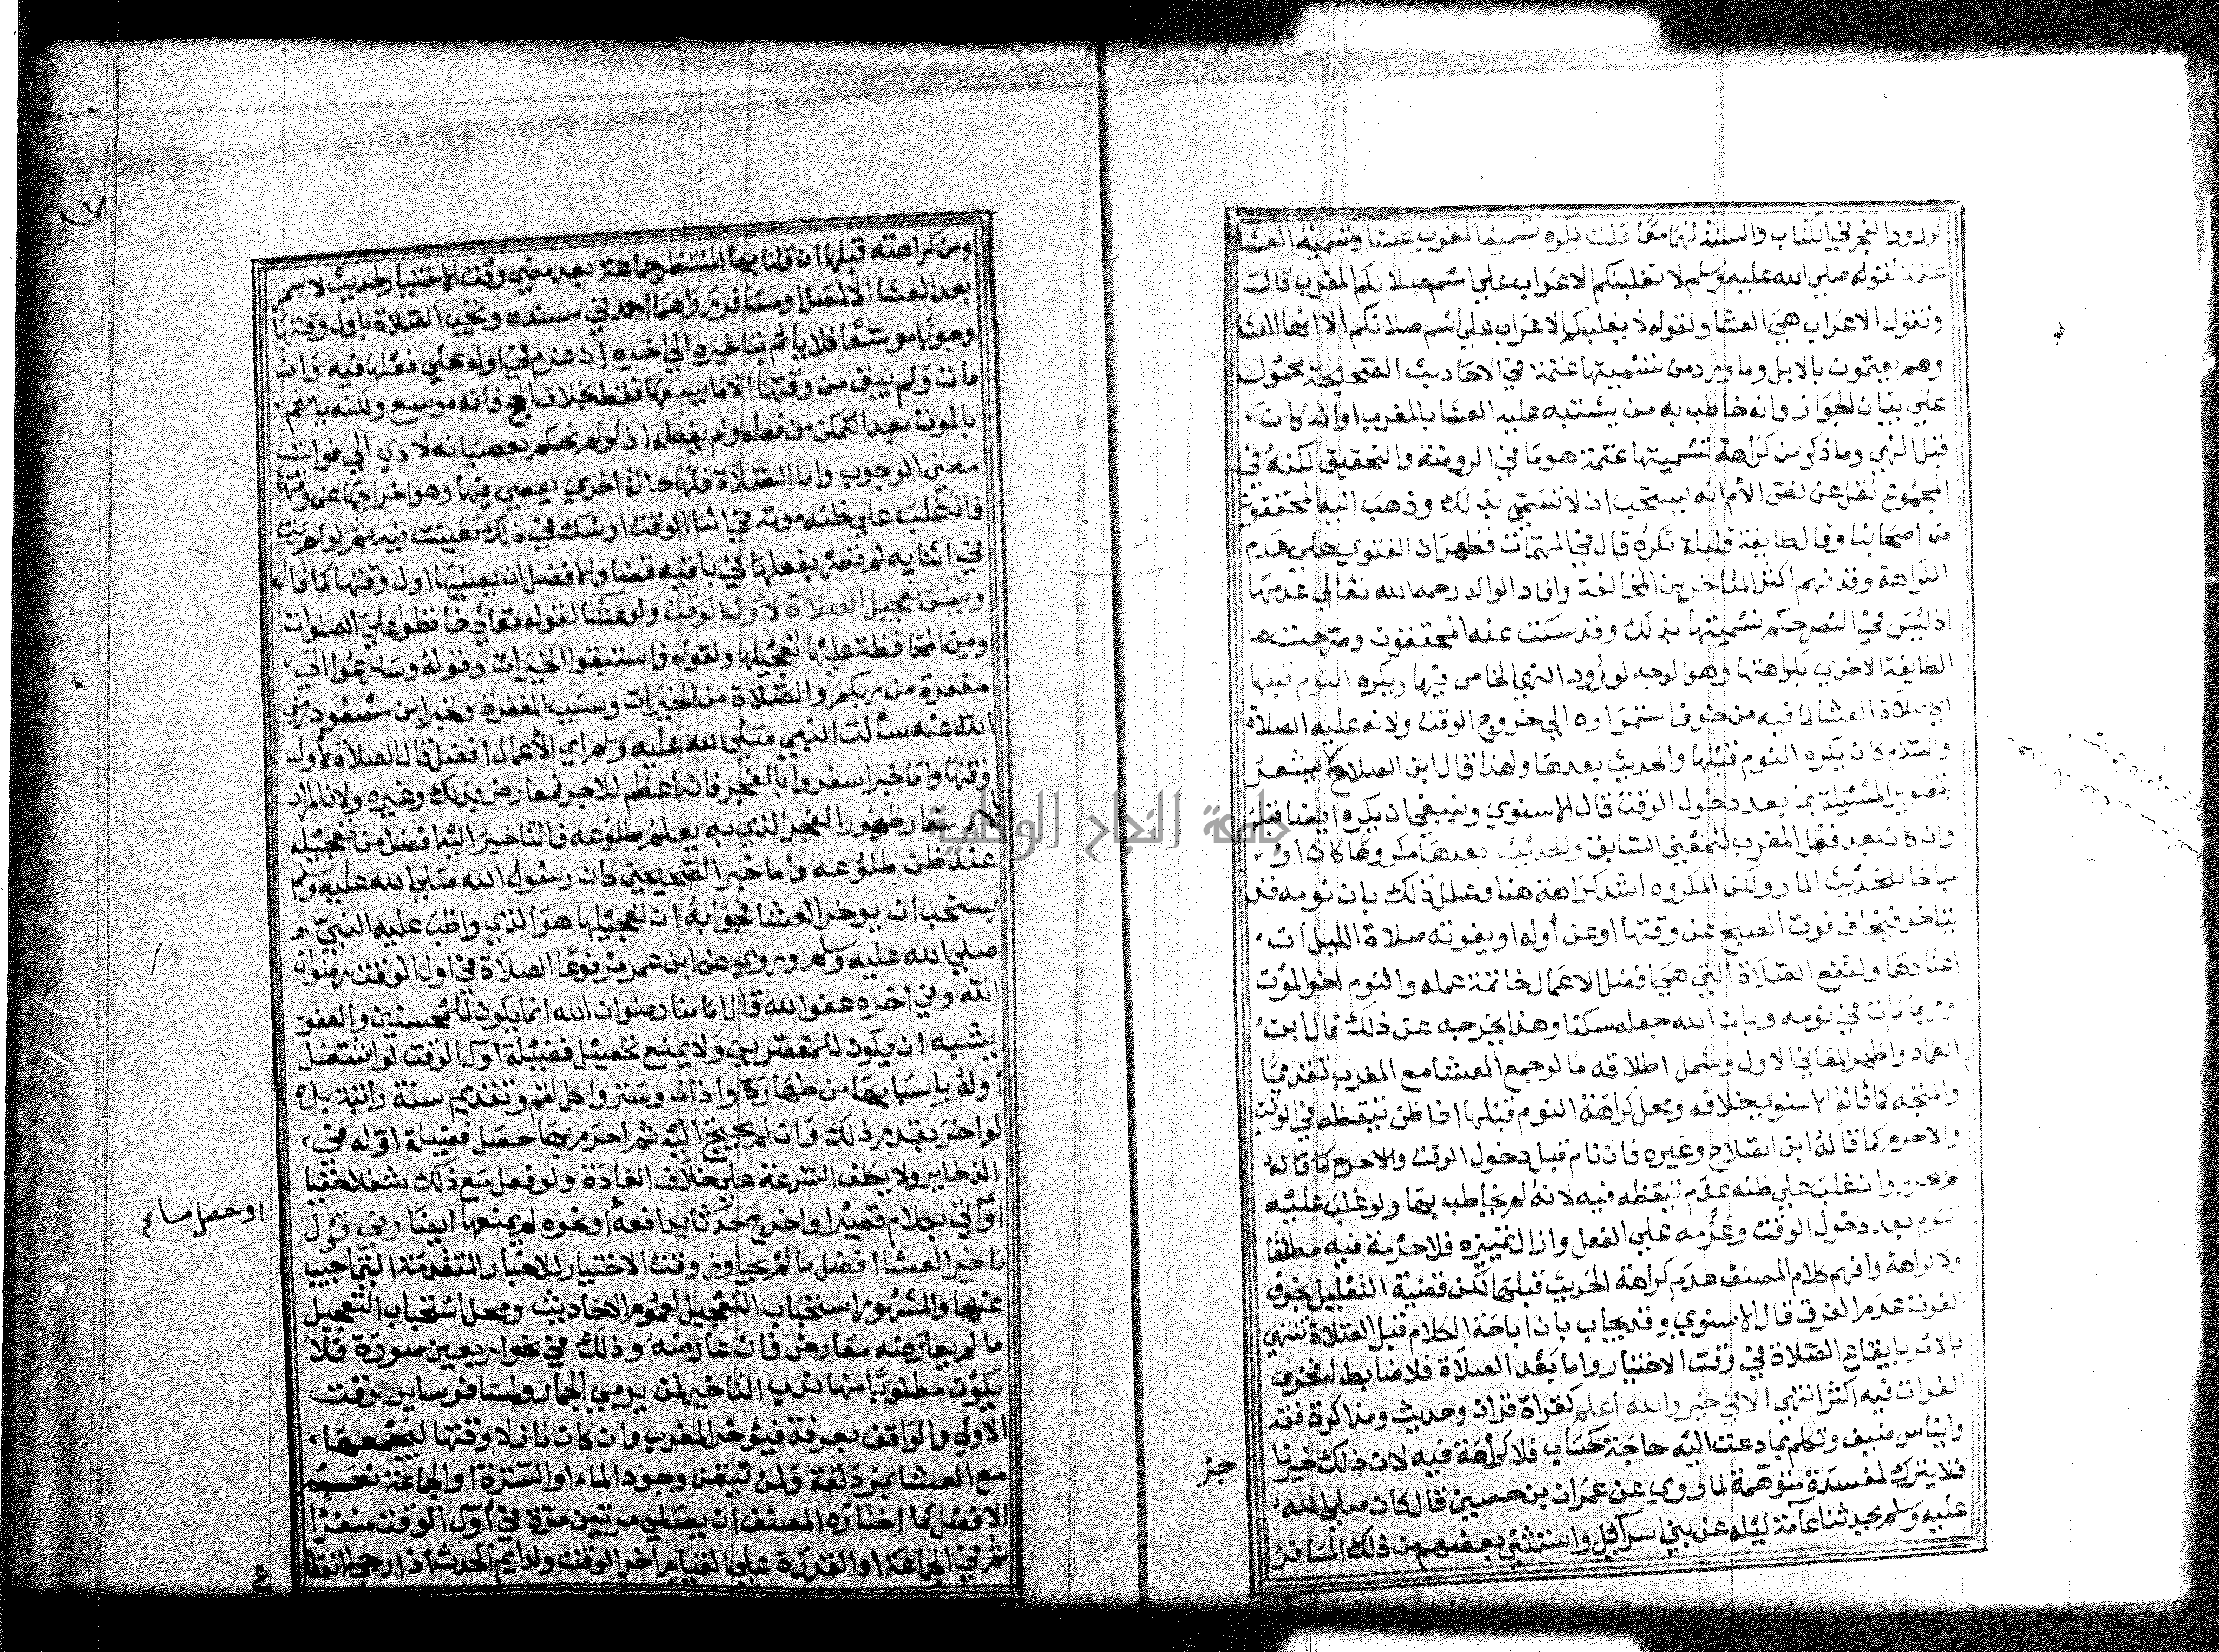 لورود الفجر في الكتاب والسنة بهما معا قلت يكره تسمية المغرب عشا وتسمية العشا
عتمة لقوله صلي الله عليه وسلم لا تغلبنكم الاعراب علي اسم صلاتكم المغرب قالت
وتقول الاعراب هي العشا ولقوله لا يغلبكم الاعراب علي اسم صلاتكم الا انها العشا
وهم يعتمون بالابل وما ورد من تسميتها عتمة في الاحاديث الصحيحة محمول
علي بيان الجواز وانه خاطب به من يشتبه عليه العشا بالمغرب او انه كان
قبل النهي وما ذكر من كراهة تسميتها عتمة هو ما في الروضة والتحقيق لكنه في
المجموع نقل عن نص الأم انه يستحب ان لا تسمي بذلك وذهب اليه المحققون
من اصحابنا وقال طايفة قليلة تكره قال في المهمات فظهر ان الفتوي علي عدم
الكراهة وقد فهم اكثر المتاخرين المخالفة وافاد الوالد رحمه الله تعالي عدمها
اذ ليس في النص حكم تسميتها بذلك وقد سكت عنه المحققون وصرحت
الطايفة الاخري بكراهتها وهو اوجه لورود النهي الخاص فيها ويكره النوم قبلها
اي صلاة العشا لما فيه من خوف استمراره الي خروج الوقت ولانه عليه الصلاة
والسلام كان يكره النوم قبلها والحديث بعدها ولهذا قال ابن الصلاح يشعر
تصوير المسئلة بما بعد دخول الوقت قال الاسنوي وينبغي ان يكره ايضا قبله
وان كان بعد فعل المغرب للمعني السابق والحديث بعدها مكروها كان او
مباحا للحديث المار ولكن المكروه اشد كراهة هنا وعلل ذلك بان نومه قد
يتاخر فيخاف فوت الصبح عن وقتها او عن أوله او يفوته صلاة الليل ان
اعتادها ولتقع الصلاة التي هي افضل الاعمال خاتمة عمله والنوم اخو الموت
وربما مات في نومه وبان الله جعله سكنا وهذا يخرجه عن ذلك قال ابن
العماد واظهر المعاني الاول وشمل اطلاقه ما لو جمع العشا مع المغرب تقديما
والمتجه كما قاله الاسنوي خلافه ومحل كراهة النوم قبلها اذا ظن تيقظه في الوقت
والا حرم كما قاله ابن الصلاح وغيره فان نام قبل دخول الوقت والا حرم كما قاله
وان غلب علي ظنه عدم تيقظه فيه لانه لم يخاطب بها ولو غلب عليه
النوم بعد دخول الوقت وعزمه علي الفعل وازال تمييزه فلا حرمة فيه مطلقا
ولا كراهة وافهم كلام المصنف عدم كراهة الحديث قبلها لكن قضية التعليل بخوف
الفوت عدم الفرق قال الاسنوي وقد يجاب بان اباحة الكلام قبل الصلاة تنتهي
بالامر بايقاع الصلاة في وقت الاختيار واما بعد الصلاة فلا ضابط له فخوف
الفوات فيه اكثر انتهي الا في خير والله اعلم كقراة قران وحديث ومذاكرة فقه
وايناس ضيف وتكلم بما دعت اليه حاجة كحساب فلا كراهة فيه لان ذلك خير نا
جز
فلا يترك لمفسدة متوهمة لما روي عن عمران بن حصين قال كان صلي الله
عليه وسلم يحدثنا عامة ليله عن بني اسرآئيل واستثني بعضهم من ذلك المسافر
ومن كراهته قبلها ان قلنا بها المنتظر جماعة بعد مضي وقت الاختيار لحديث لا سمر
بعد العشا الا لمصل او مسافر رواهما احمد في مسنده وتجب الصلاة باول وقتها
وجوبا موسعا فلا ياثم بتاخيره الي اخره ان عزم في اوله علي فعلها فيه وان
مات ولم يبق من وقتها الا ما يسعها فقط بخلاف الحج فانه موسع ولكنه ياثم
بالموت بعد التمكن من فعله ولم يفعله اذ لو لم نحكم بعصيانه لادي الي فوات
معني الوجوب واما الصلاة فلها حالة اخري يعصي فيها وهو اخراجها عن وقتها
فان غلب علي ظنه موته في اثنا الوقت او شك في ذلك تعينت فيه ثم لو لم يمت
في اثنايه لم تصر بفعلها في باقيه قضا والافضل ان يصليها اول وقتها كما قال
ويسن تعجيل الصلاة لأول الوقت ولو عشا لقوله تعالي حافظوا علي الصلوات
ومن المحافظة عليها تعجيلها ولقوله فاستبقوا الخيرات وقوله وسارعوا الي
مغفرة من ربكم والصلاة من الخيرات وسبب المغفرة ولخبر ابن مسعود رضي
الله عنه سألت النبي صلي الله عليه وسلم اي الأعمال افضل قال الصلاة لأول
وقتها واما خبر اسفروا بالفجر فانه اعظم للاجر فمعارض بذلك وغيره ولان المراد
بالاسفار ظهور الفجر الذي به يعلم طلوعه فالتاخير اليه افضل من تعجيله
عند ظن طلوعه واما خبر الصحيحين كان رسول الله صلي الله عليه وسلم
يستحب ان يوخر العشا فجوابه ان تعجيلها هو الذي واظب عليه النبي
صلي الله عليه وسلم وروي عن ابن عمر مرفوعا الصلاة في اول الوقت رضوان
الله وفي اخره عفو الله قال امامنا رضوان الله انما يكون للمحسنين والعفو
يشبه ان يكون للمقصرين ولا يمنع تحصيل فضيلة اول الوقت لو اشتغل
أوله باسبابها من طهارة واذان وستر واكل لقم وتقديم سنة راتبة بل
لو اخر بقدر ذلك وان لم يحتج اليه ثم احرم بها حصل فضيلة اوله في
الذخاير ولا يكلف السرعة علي خلاف العادة ولو فعل مع ذلك شغلا خفيا
او حصل مساع
او آتي بكلام قصير او اخرج حدثا يدافعه او نحوه لم يمنعها ايضا وفي قول
تاخير العشا افضل ما لم يجاوز وقت الاختيار للاخبار المتقدمة التي اجيب
عنها والمشهور استحباب التعجيل لعموم الاحاديث ومحل استحباب التعجيل
ما لم يعارضه معارض فان عارضه وذلك في نحو اربعين صورة فلا
يكون مطلوبا منها ندب التاخير لمن يرمي الجمار ولمسافر ساير وقت
الاولي والواقف بعرفة فيؤخر المغرب وان كان نازلا وقتها ليجمعها
مع العشا بمزدلفة ولمن تيقن وجود الماء او السترة او الجماعة
الافضل كما اختاره المصنف ان يصلي مرتين مرة في أول الوقت منفردا
ثم في الجماعة او القدرة علي القيام اخر الوقت ولدايم الحدث اذا رجي الانقطا
ع
جامعة النجاح الوطنية